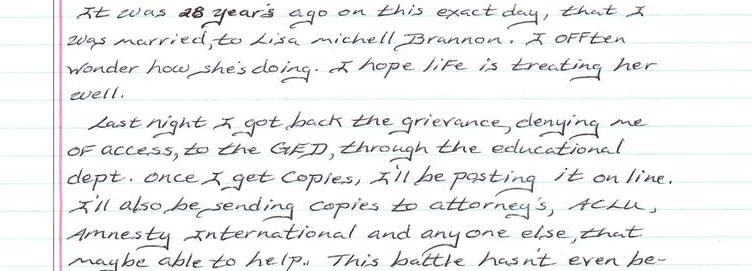 It was 28 year's ago on this exact day, that I
was married, to Lisa michell Brannon. I offten
wonder how she's doing. I hope life is treating her
well.
Last night I got back the grievance, denying me
of access, to the GED, through the educational
dept. once I get copies, I'll be posting it on line.
I'll also be sending copies to attorney's, ACLU,
Amnesty International and anyone else, that
maybe able to help.. This battle hasn't even be-